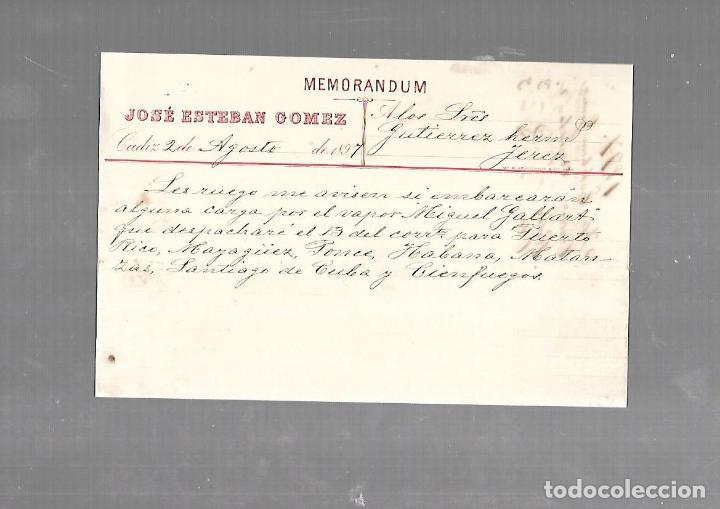 MEMORANDUM
JOSÉ ESTEBAN GOMEZ
Cadiz 2 de Agosto de 1897
A los Sres
Gutierrez herms
Jerez
Les ruego me avisen si embarcarán
alguna carga por el vapor Miguel Gallart
que despacharé el 13 del corrte para Puerto
Rico, Mayagüez, Ponce, Habana, Matan-
zas, Santiago de Cuba y Cienfuegos.
todocoleccion.net